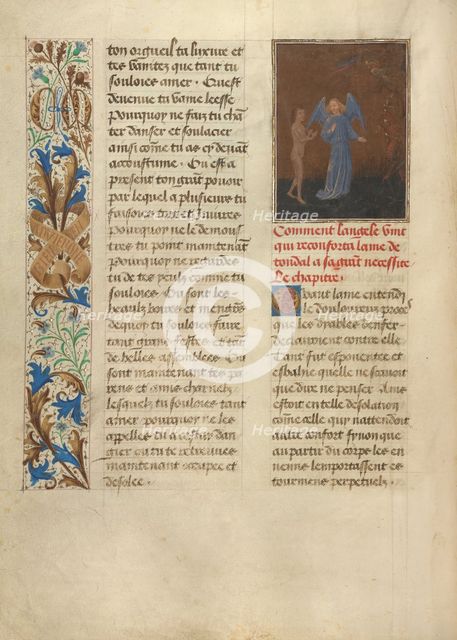 ton orgueil ta luxure et
tes vanitez que tant tu
souloies amer. Ou est
devenue ta vaine leesse
Pourquoy ne faiz tu chā
ter danser et soulacier
ainsi cōme tu as cy devant
accoustume. Ou est a
present ton grant pouoir
par lequel a plusieurs tu
faisoies tort et iniures
Pourquoy ne le demoū
tres tu point maintenant
Pourquoy ne regardes
tu de tes yeulx cōme tu
souloies. Ou sont les
beaulx boires et mengiers
de quoy tu souloies faire
tant grans festes et tant
de belles assemblees. Ou
sont maintenant tes pa
rens et amis charnelz
lesquelz tu souloies tant
amer pourquoy ne les
appelles tu a cestui dan
gier ou tu te retreuves
maintenant
desolee.
Comment langele vint
qui reconforta lame de
tondal a sa grant necessite.
Le chapitre.
Quant lame entendy
le douloureux proces
que les dyables denfer
declairoient contre elle
Tant fut espoentee et
esbahie quelle ne scavoit
que dire ne penser. Ains
estoit en telle desolation
comme celle qui nattendoit
autre confort synon que
au partir du corps les en
nemis lemportassent es
tourmens perpetuelz.
Heritage
Heritage
Heritage
Heritage